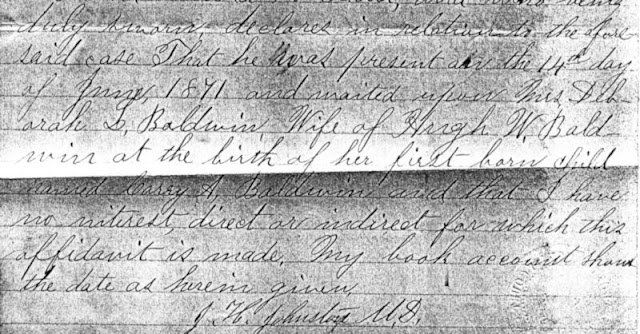 duly sworn, declares in relation to the afore
said case That he was present on the 14th day
of June, 1871 and waited upon Mrs Deb
orah L. Baldwin, Wife of Hugh W. Bald
win at the birth of her first born child
named Carey A. Baldwin and that I have
no interest, direct or indirect for which this
affidavit is made. My book account shows
the date as herein given.
J. H. Johnston M.D.